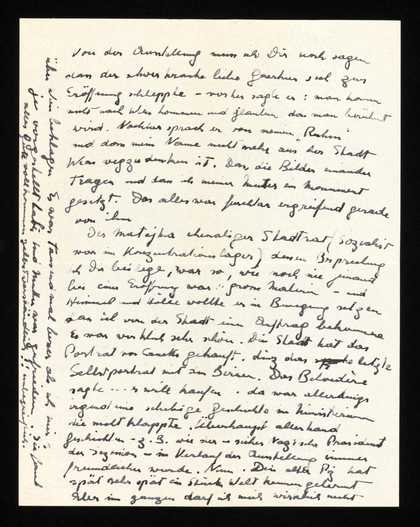 Von der Ausstellung muss ich Dir noch sagen
dass der schwerkranke liebe Gaertner sich zur
Eröffnung schleppte - vorher sagte er: man kann
nicht nach Wien kommen und glauben dass man berühmt
wird. Nachher sprach er von meinem "Ruhm"
und dass mein Name nicht mehr aus der Stadt
Wien wegzudenken ist. Dass die Bilder einander
tragen und dass ich meiner Mutter ein Monument
gesetzt. Das alles war furchtbar ergreifend gerade
von ihm
Der Matejka ehemaliger Stadtrat (sozialist
war im Konzentrationslager) dessen Besprechung
ich Dir beilege, war so, wie noch nie jemand
bei einer Eröffnung war "grosse Malerin" - und
Himmel und Hölle wollte er in Bewegung setzen
dass ich von der Stadt einen Auftrag bekomme
Es war wirklich sehr schön. Die Stadt hat das
Portrait von Canetti gekauft. das letzte
Selbstportrait mit den Birnen. Das Belvedere
sagte - es will kaufen - da war allerdings
irgend eine Geschichte im Ministerium
die nicht klappte. Ueberhaupt allerhand
Geschichten - z.B. wie der Präsident
der Sezession - im Verlauf der Ausstellung immer
freundlicher wurde. Nun. Dein alter Pi hat
spät sehr spät ein Stück Welt kennen gelernt
Aber im ganzen darf ich mich wirklich nicht
über beklagen. Es war tausend mal besser als ich mir's
je vorgestellt habe und Mutter war zufrieden. Sie fand
alles vollkommen selbstverständlich!!